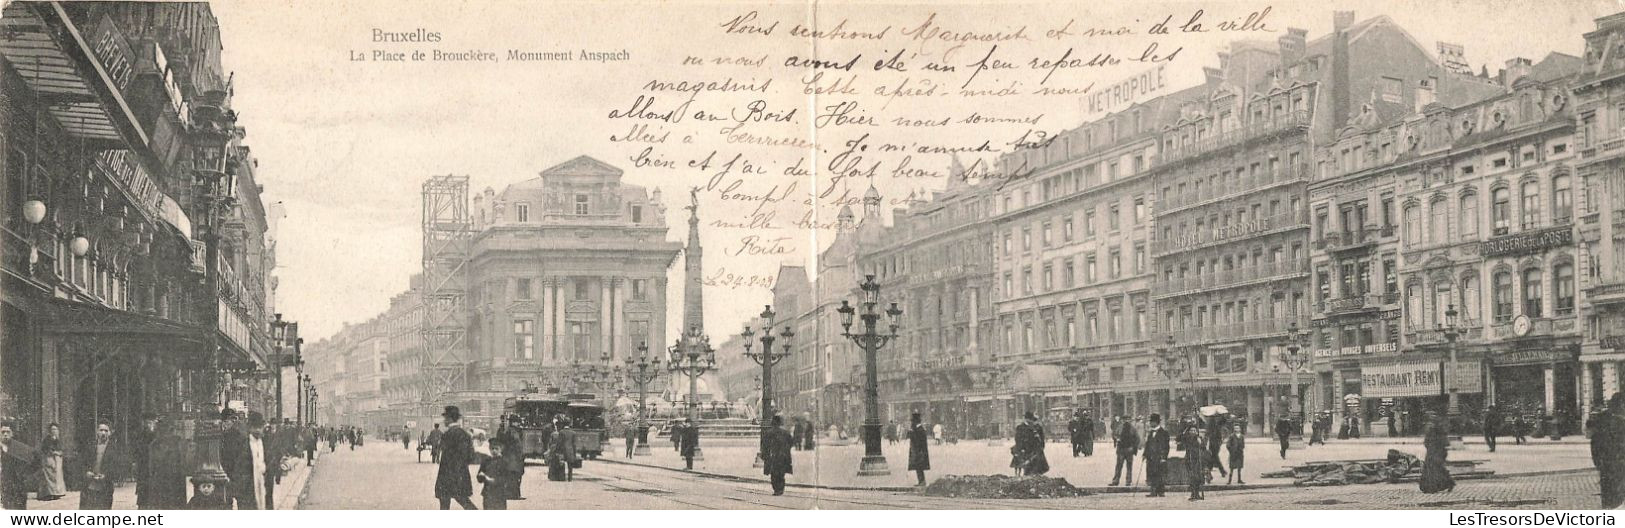 Bruxelles
La Place de Brouckère, Monument Anspach
Nous rentrons Marguerite et moi de la ville
ou nous avons été un peu repasser les
magasins. Cette après-midi nous
allons au Bois. Hier nous sommes
allées à Tervueren. Je m'amuse très
bien et j'ai du fort beau temps
Compl à tous et
mille baisers
Rita
BREVETS
METROPOLE
HOTEL METROPOLE
HORLOGERIE DE LA POSTE
AGENCE DES VOYAGES UNIVERSELS
RESTAURANT REMY
LesTresorsDeVictoria.com